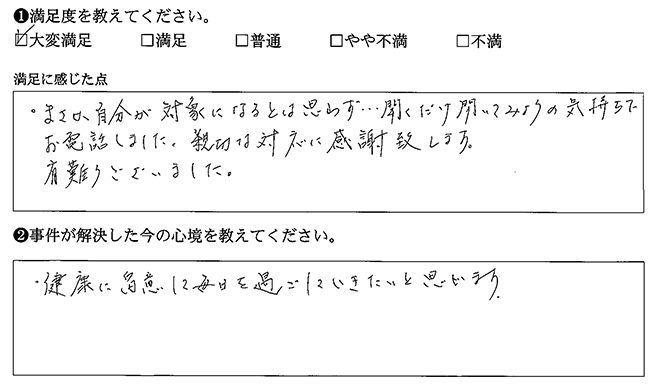 ❶満足度を教えてください。
☑大変満足 □満足 □普通 □やや不満 □不満
満足に感じた点
・まさか自分が対象になるとは思わず…聞くだけ聞いてみようの気持ちで
お電話しました。親切な対応に感謝致します。
有難うございました。
❷事件が解決した今の心境を教えてください。
・健康に留意して毎日を過ごしていきたいと思います。